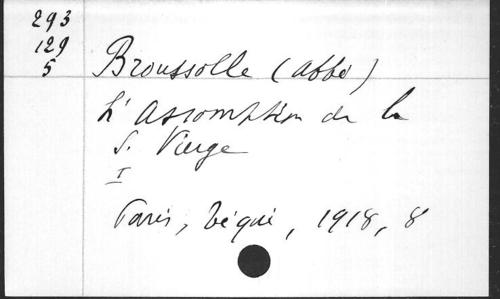 293
129
5
Broussolle (abbé)
L'assomption de la
S. Vierge
I
Paris, Téqui, 1918, 8